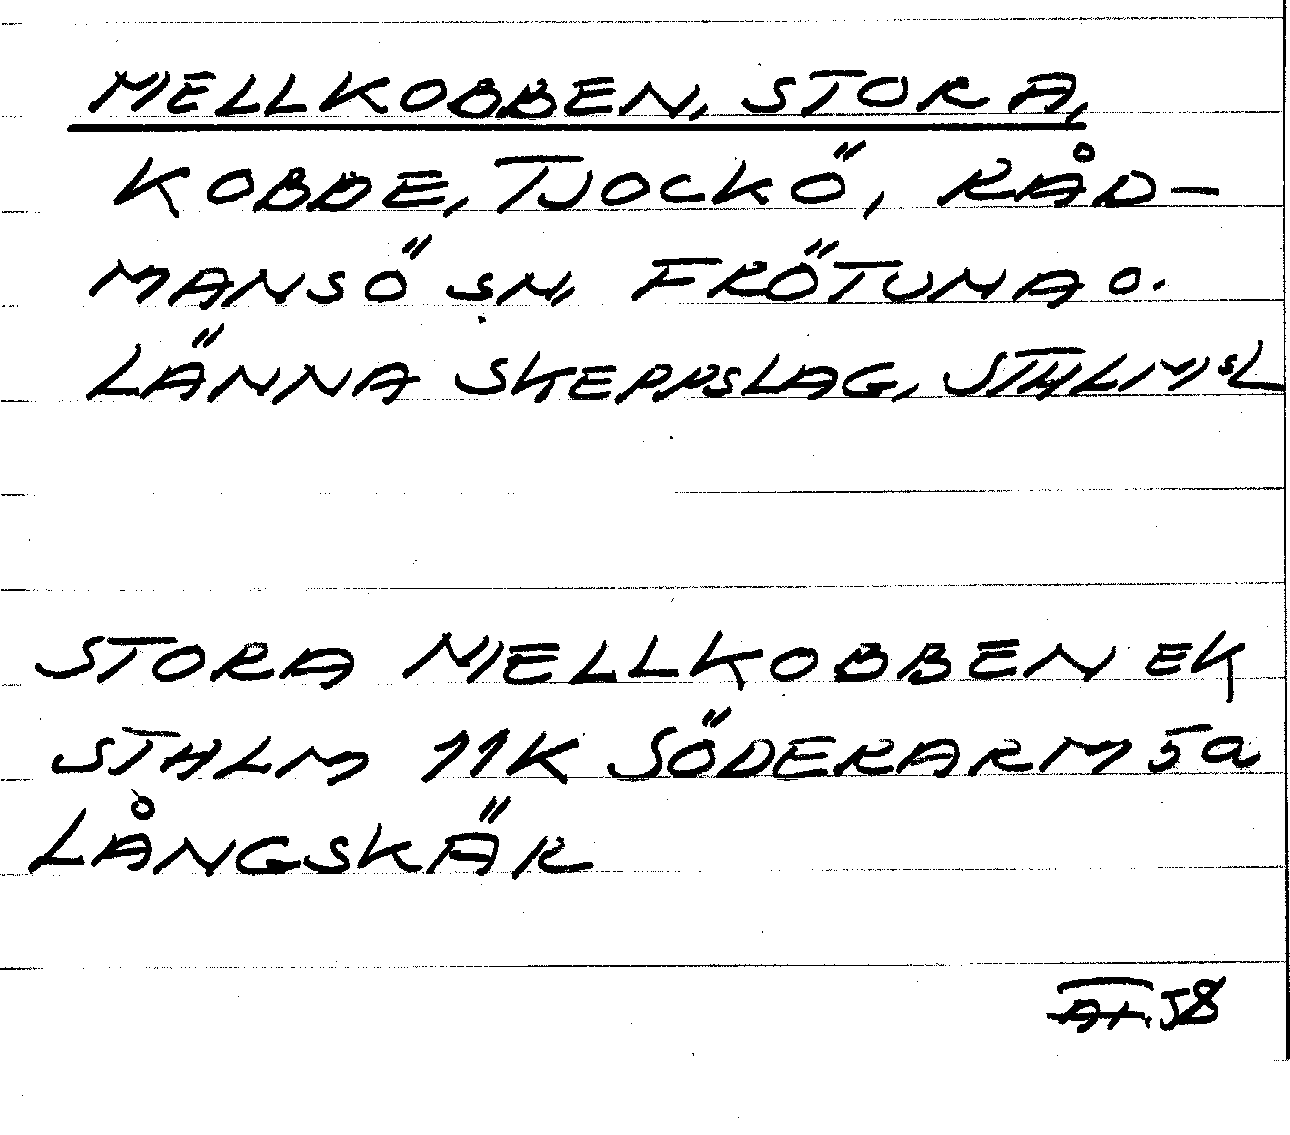 MELLKOBBEN, STORA,
KOBBE, TJOCKÖ, RÅD-
MANSÖ SN, FRÖTUNA O.
LÄNNA SKEPPSLAG, STHLMSL
STORA MELLKOBBEN EK
STHLM 11K SÖDERARM 5a
LÅNGSKÄR
58